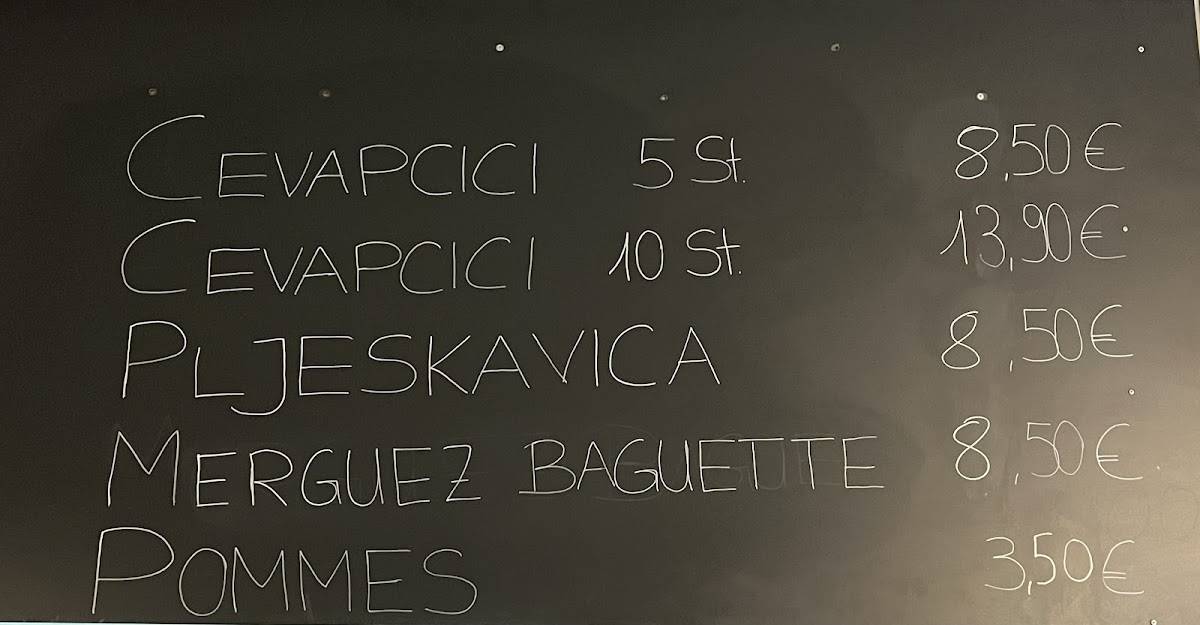 CEVAPCICI 5 St. 8,50€
CEVAPCICI 10 St. 13,90€
PLJESKAVICA 8,50€
MERGUEZ BAGUETTE 8,50€
POMMES 3,50€